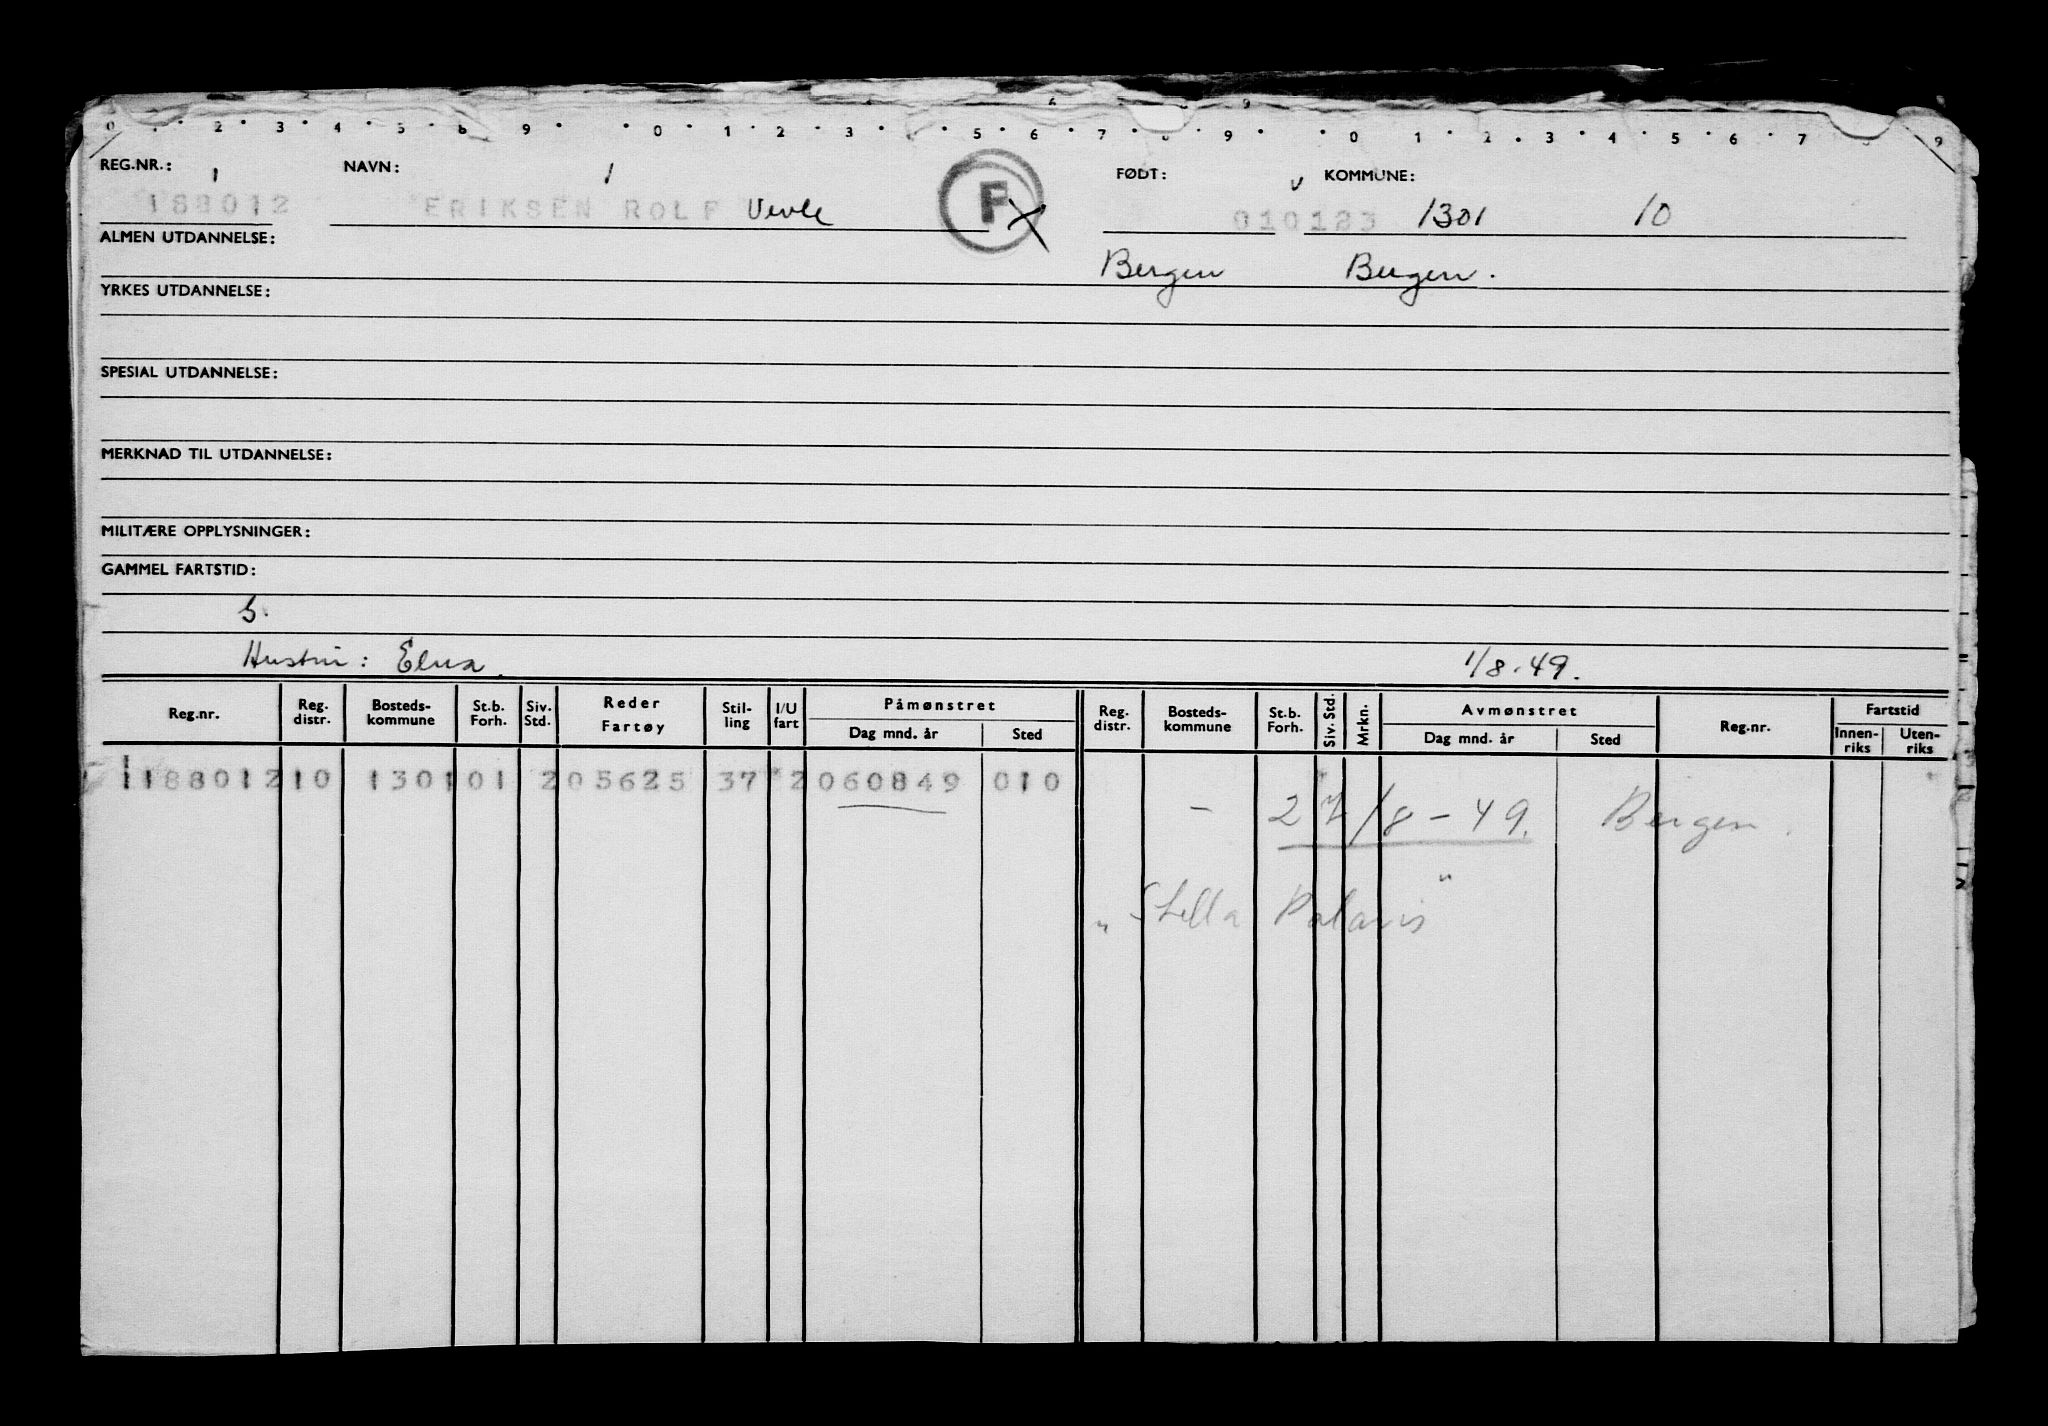 0 2 3 4 5 6 9 0 1 2 3 5 6 7 8 9 0 1 2 3 4 5 6 7 9
REG.NR.: NAVN: FØDT: KOMMUNE:
188012 ERIKSEN ROLF F 010123 1301 10
ALMEN UTDANNELSE:
Bergen Bergen.
YRKES UTDANNELSE:
SPESIAL UTDANNELSE:
MERKNAD TIL UTDANNELSE:
MILITÆRE OPPLYSNINGER:
GAMMEL FARTSTID:
S.
Hustru: Elna. 1/8.49.
Reg.nr. Reg. distr. Bosteds-kommune St.b. Forh. Siv. Std. Reder Fartøy Stil-ling I/U fart Påmønstret Dag mnd. år Sted Reg. distr. Bosteds-kommune St.b. Forh. Siv. Std. Mrkn. Avmønstret Dag mnd. år Sted Reg.nr. Fartstid Innen-riks Uten-riks
188012 10 1301 01 2 05625 37 2 060849 010
- 27/8-49. Bergen.
"Stella Polaris"